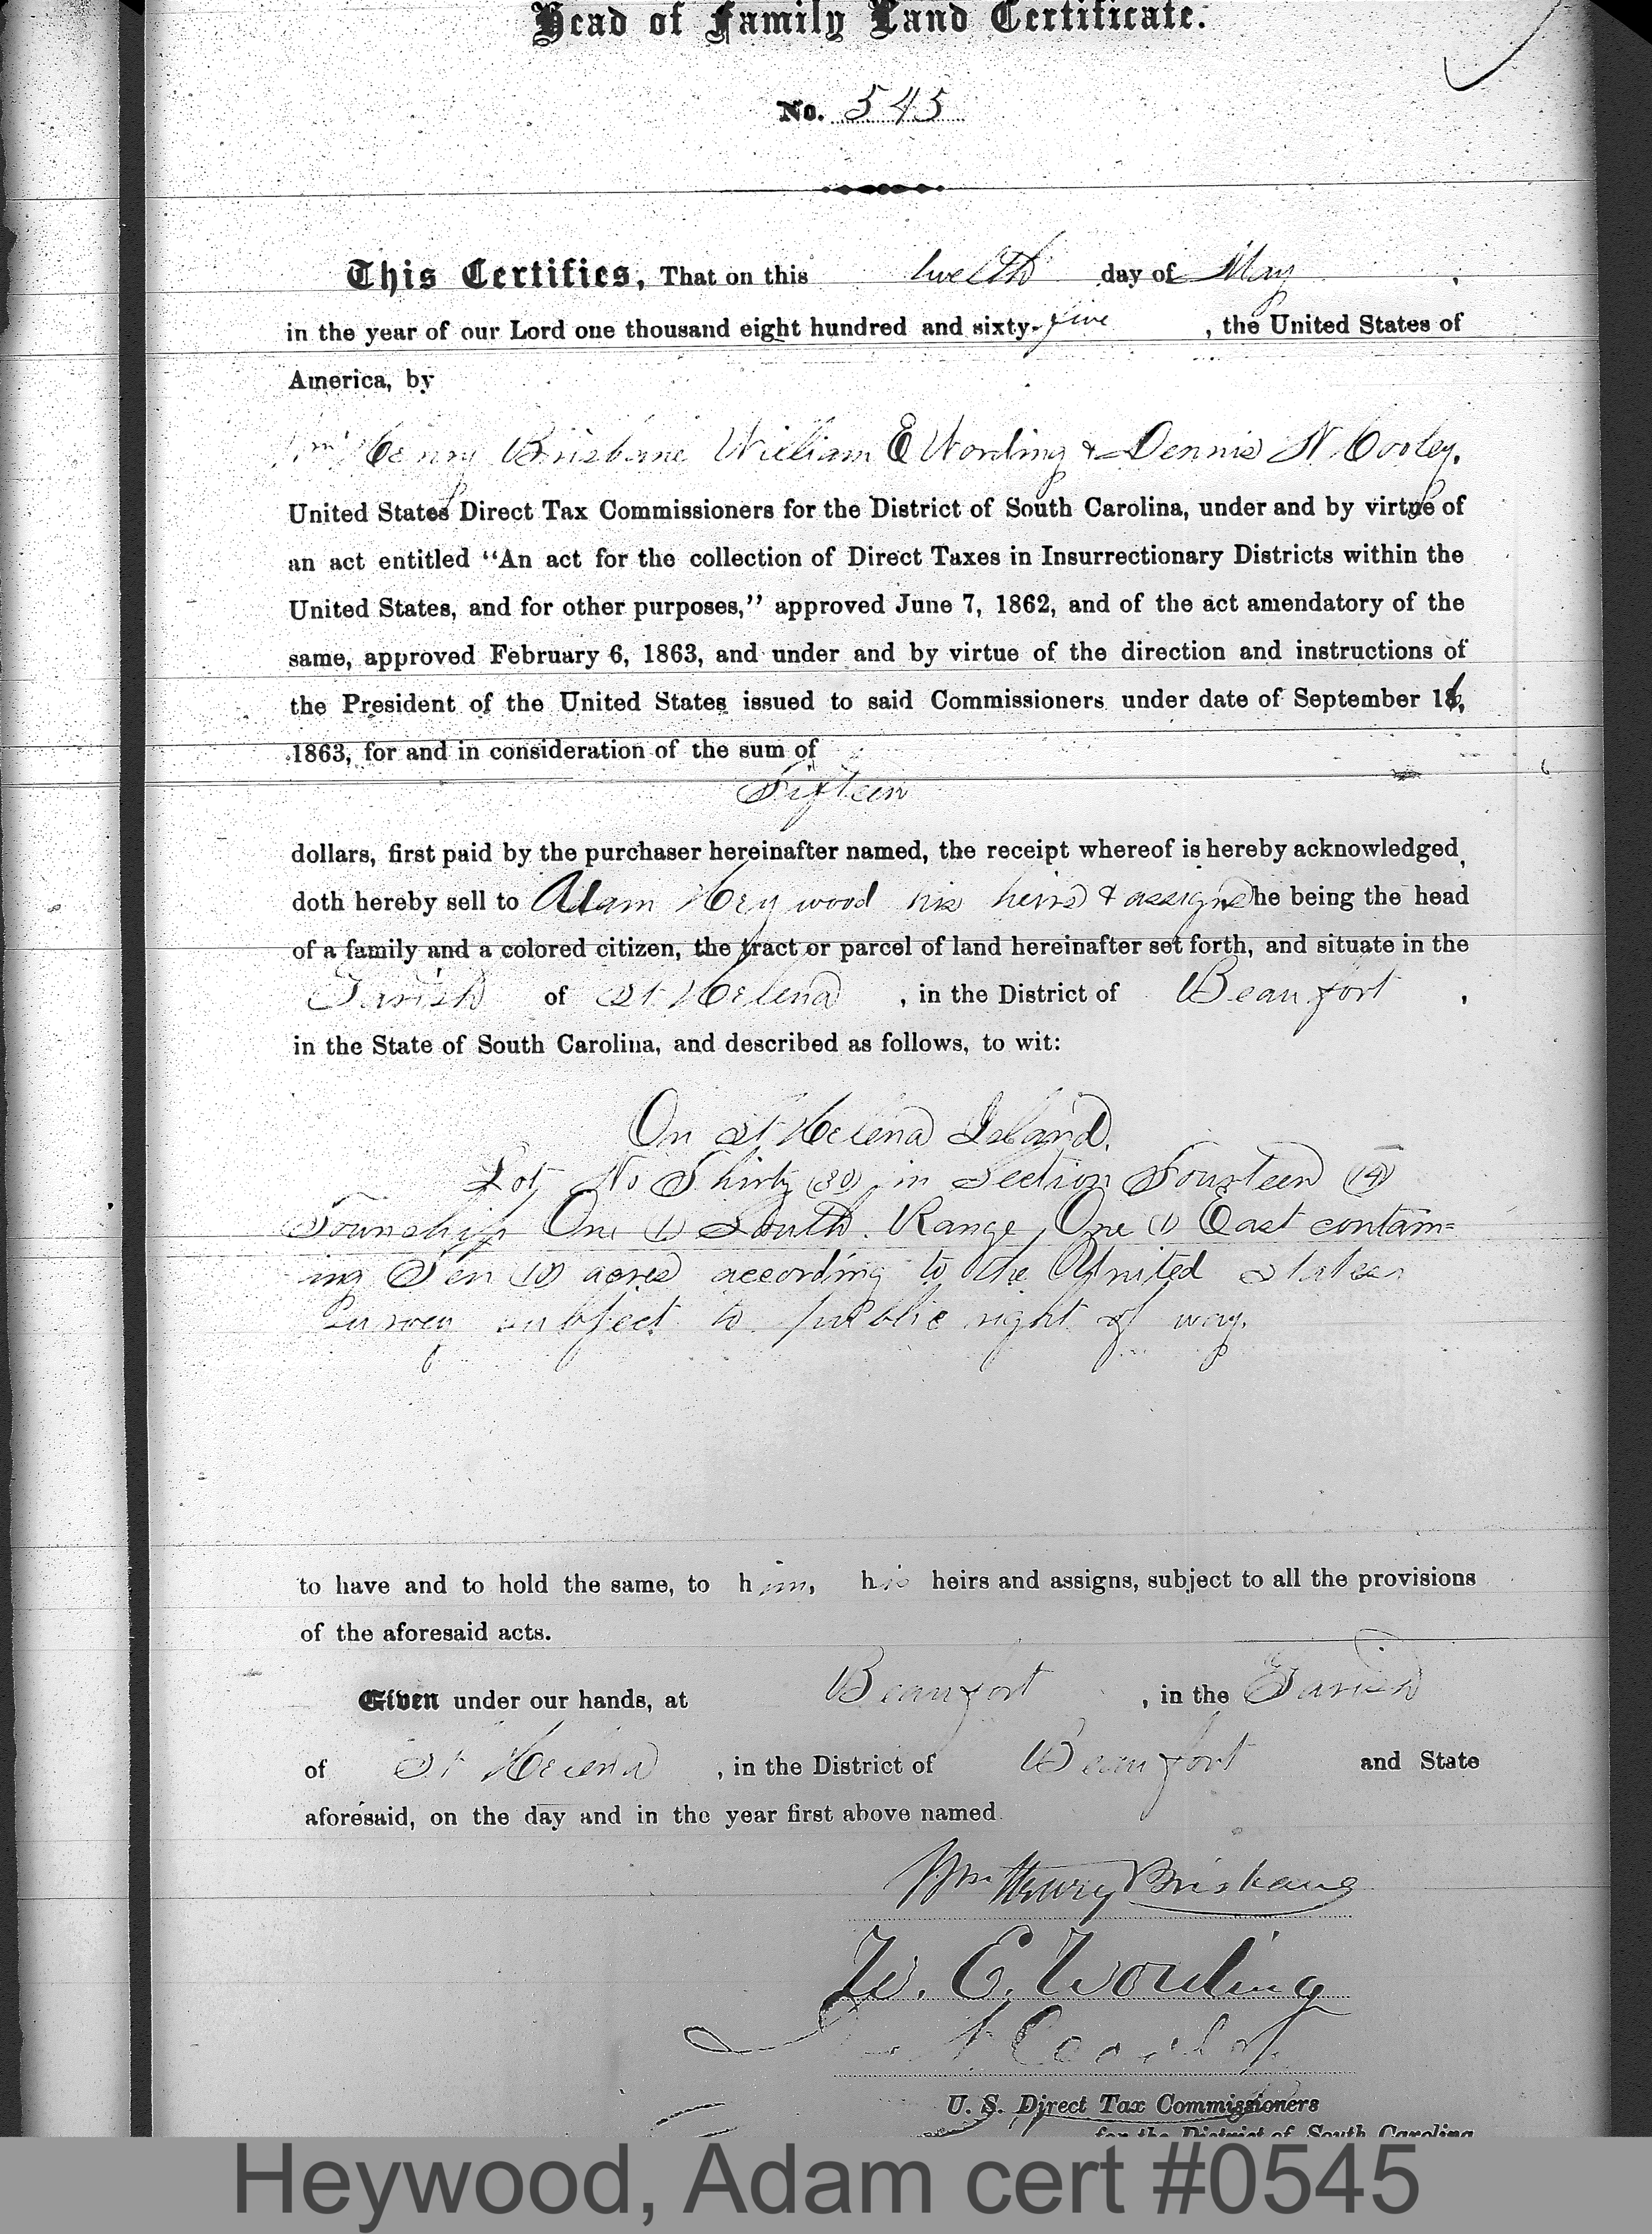 Head of Family Land Certificate.
No. 545
This Certifies, That on this twelth day of May,
in the year of our Lord one thousand eight hundred and sixty-five, the United States of
America, by
Wm Henry Brisbane William E Wording & Dennis N Cooley,
United States Direct Tax Commissioners for the District of South Carolina, under and by virtue of
an act entitled “An act for the collection of Direct Taxes in Insurrectionary Districts within the
United States, and for other purposes,” approved June 7, 1862, and of the act amendatory of the
same, approved February 6, 1863, and under and by virtue of the direction and instructions of
the President of the United States issued to said Commissioners under date of September 16,
1863, for and in consideration of the sum of
Fifteen
dollars, first paid by the purchaser hereinafter named, the receipt whereof is hereby acknowledged,
doth hereby sell to Adam Heywood his heirs & assigns he being the head
of a family and a colored citizen, the tract or parcel of land hereinafter set forth, and situate in the
Parish of St Helena, in the District of Beaufort,
in the State of South Carolina, and described as follows, to wit:
On St Helena Island.
Lot No Thirty (30) in Section Fourteen (14)
Township One (1) South Range One (1) East contain=
ing Ten (10) acres according to the United States
Survey subject to public right of way.
to have and to hold the same, to him, his heirs and assigns, subject to all the provisions
of the aforesaid acts.
Given under our hands, at Beaufort, in the Parish
of St Helena, in the District of Beaufort and State
aforesaid, on the day and in the year first above named
Wm Henry Brisbane
W. E. Wording
D. N. Cooley
U. S. Direct Tax Commissioners
for the District of South Carolina
Heywood, Adam cert #0545